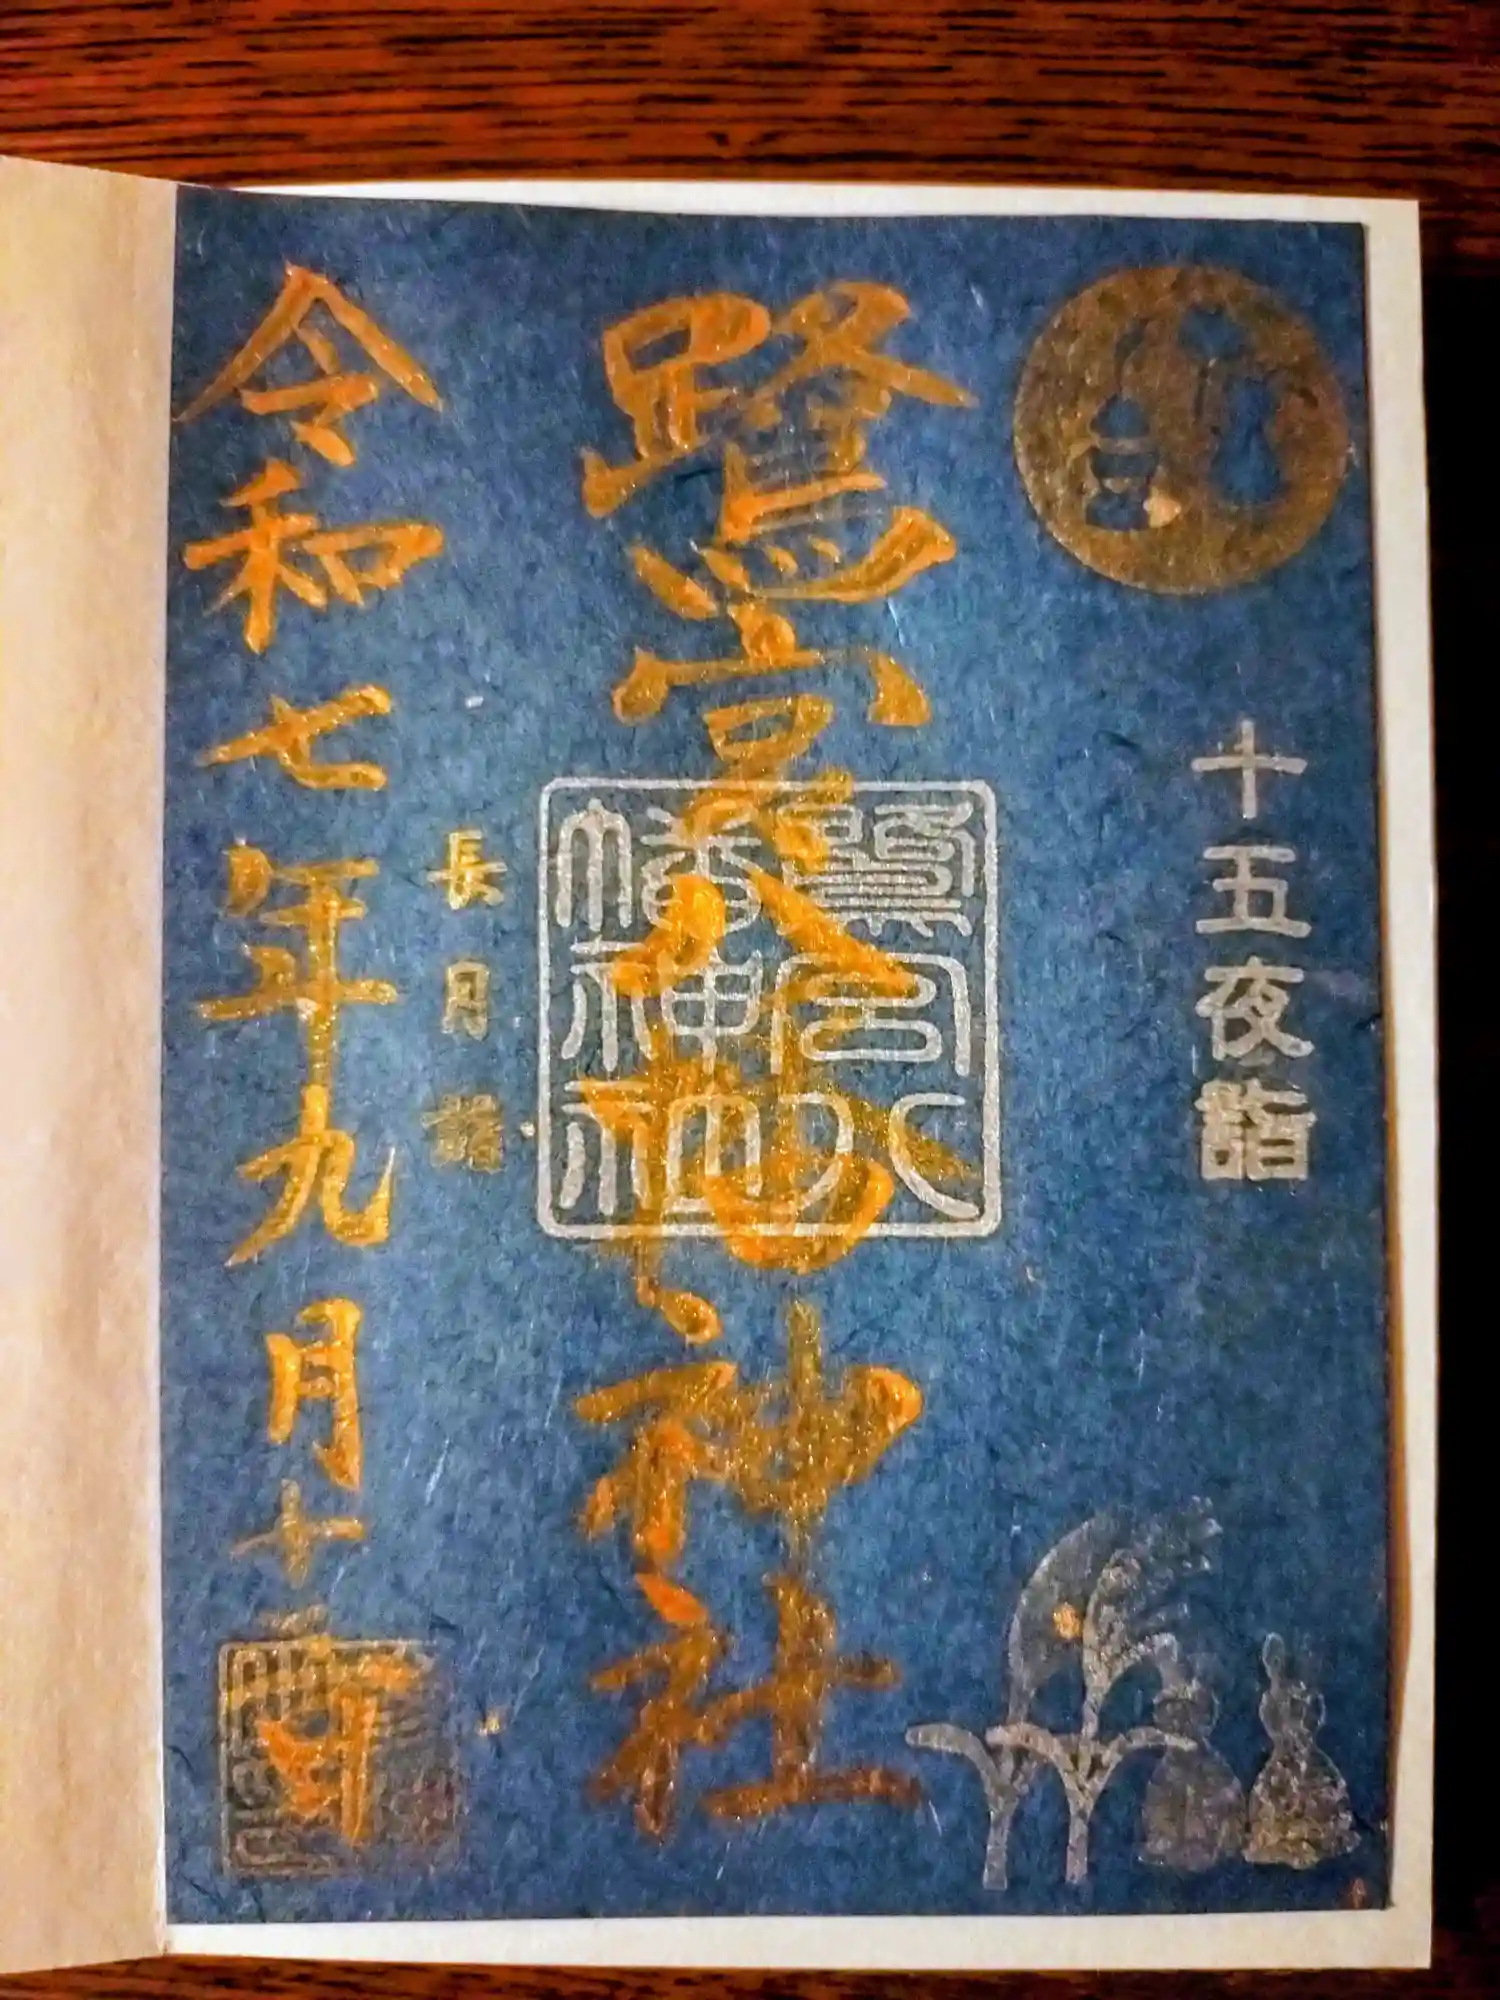 十五夜詣
鷺宮八幡神社
鷺宮八
幡神社
長月詣
令和七年九月十一日